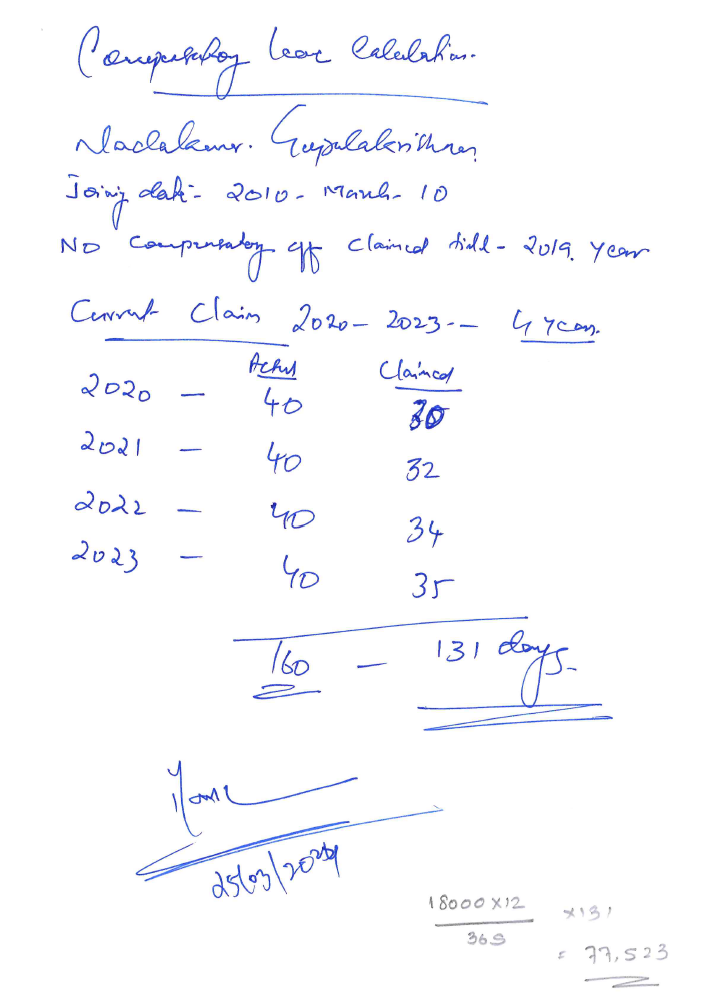 Compensatory leave Calculation.
Nadakumar. Gopalakrishnan
Joining date:- 2010 - March - 10
NO Compensatory off claimed till - 2019. Year
Current Claim 2020 - 2023 -- 4 years.
Actual Claimed
2020 - 40 30
2021 - 40 32
2022 - 40 34
2023 - 40 35
160 - 131 days.
25/03/2024
18000 x12
365
x131
= 77,523